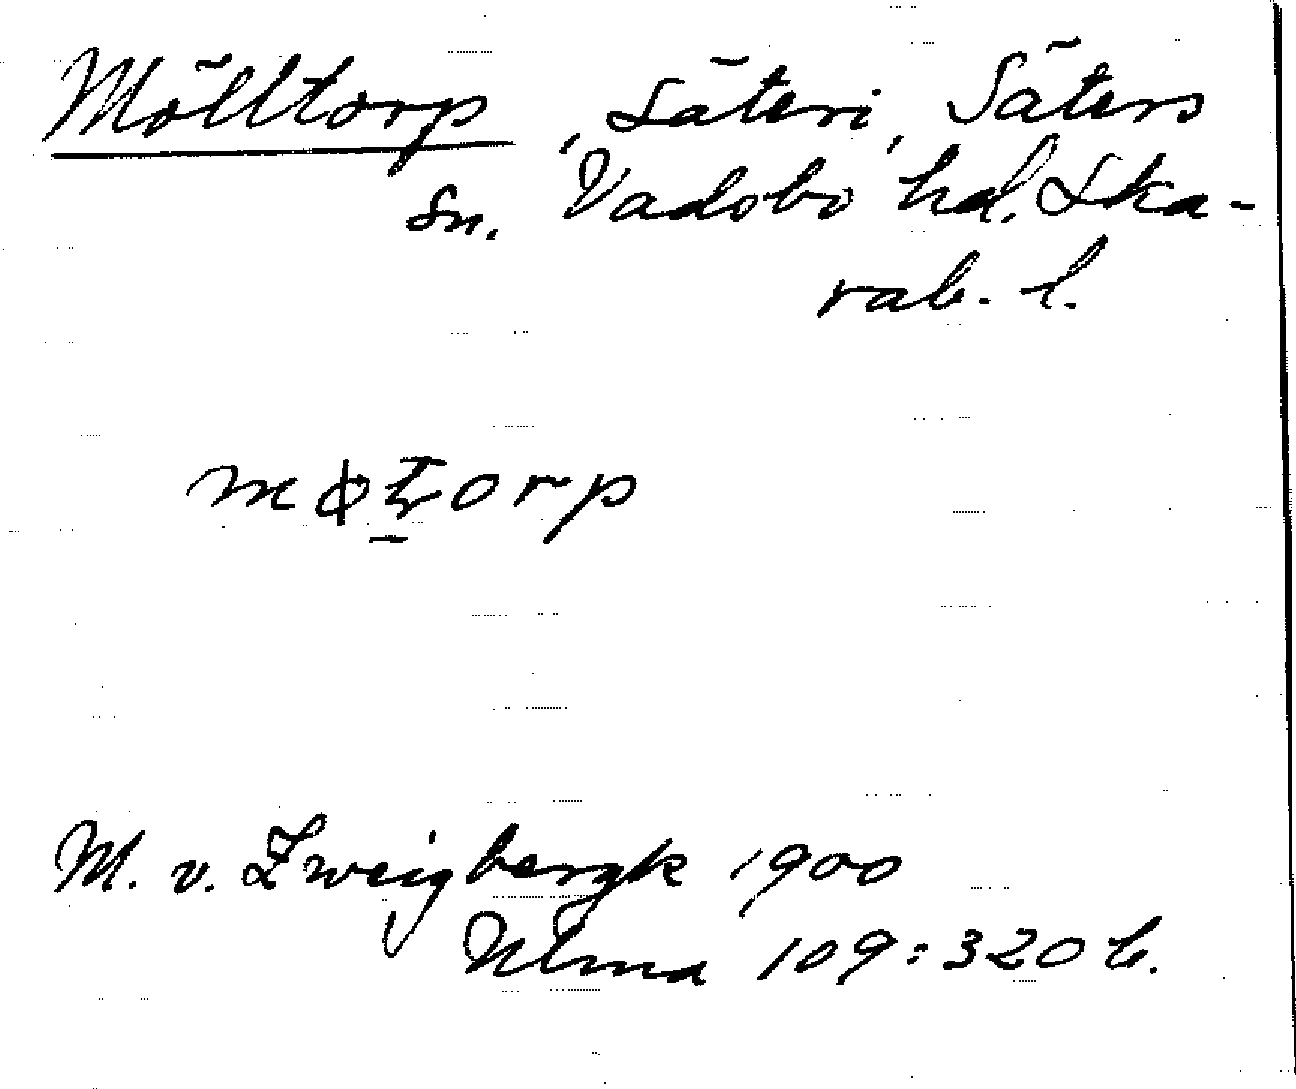 Mölltorp, Säteri, Säters
sn. Vadsbo hd. Ska-
rab. l.
mɸtorp
M. v. Zweigbergk 1900
Ulma 109:320 b.